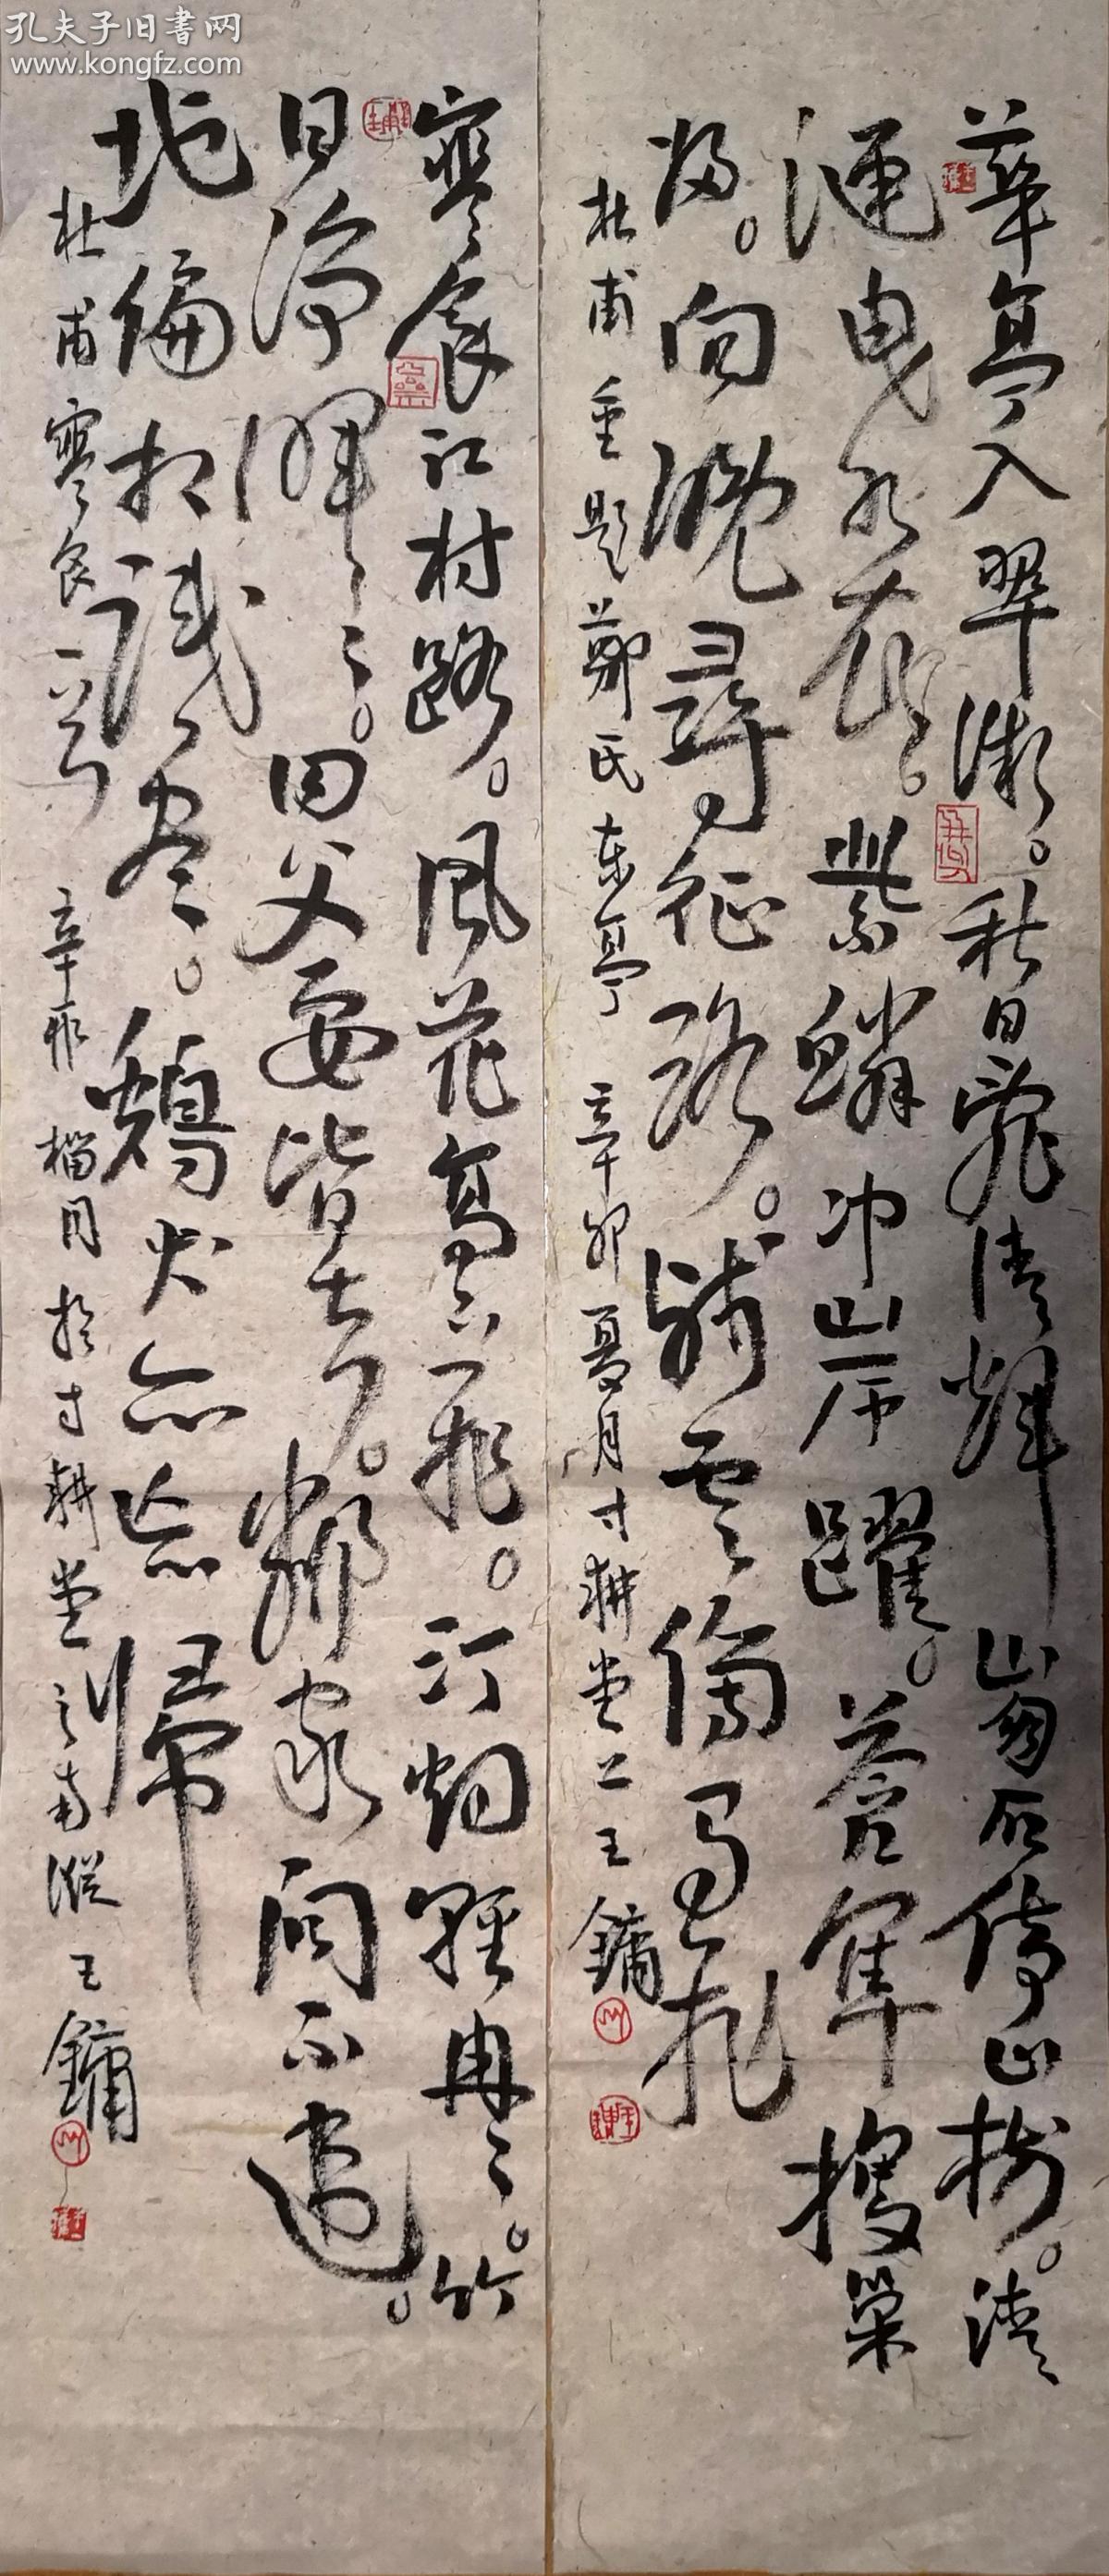 孔夫子旧書网
www.kongfz.com
華亭入翠微。秋日亂清輝崩石倚山樹。清
漣曳水衣。紫鱗冲岸躍。蒼隼護巢
歸。向晚尋征路。殘雲傍馬飛
杜甫重題鄭氏東亭 辛卯夏月寸耕堂上王鏞
寒食江村路。風花高下飛。汀烟輕冉冉。竹
日淨暉暉。田父要皆去。鄰家問不違。
地偏相識盡。鷄犬亦忘歸
杜甫寒食一首 辛卯榴月於寸耕堂之南窗王鏞